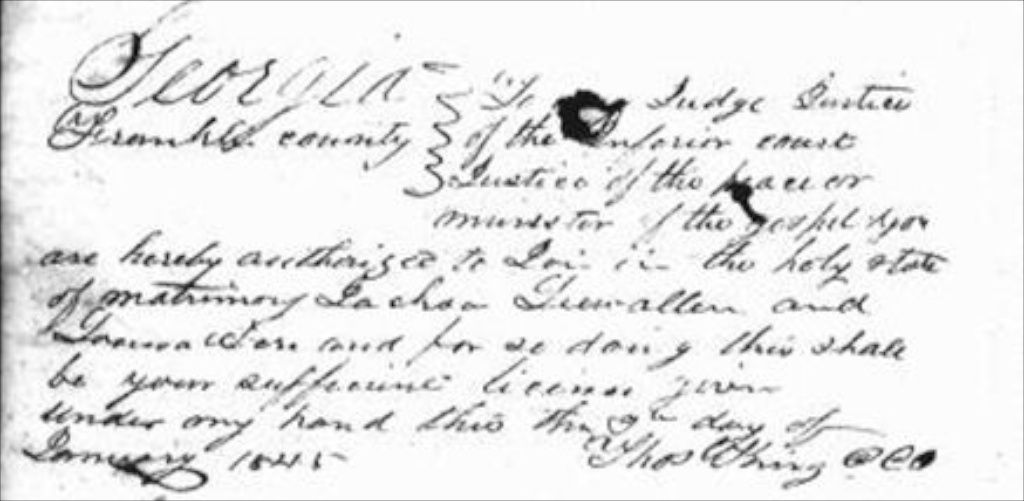 Georgia
Franklin county
To Judge Justice
of the Inferior court
Justice of the peace or
minister of the gospel you
are hereby authorized to Join in the holy state
of matrimony Jackson and
and for so doing this shall
be your sufficient license given
under my hand this the 9th day of
January 1845
Thos King CCO